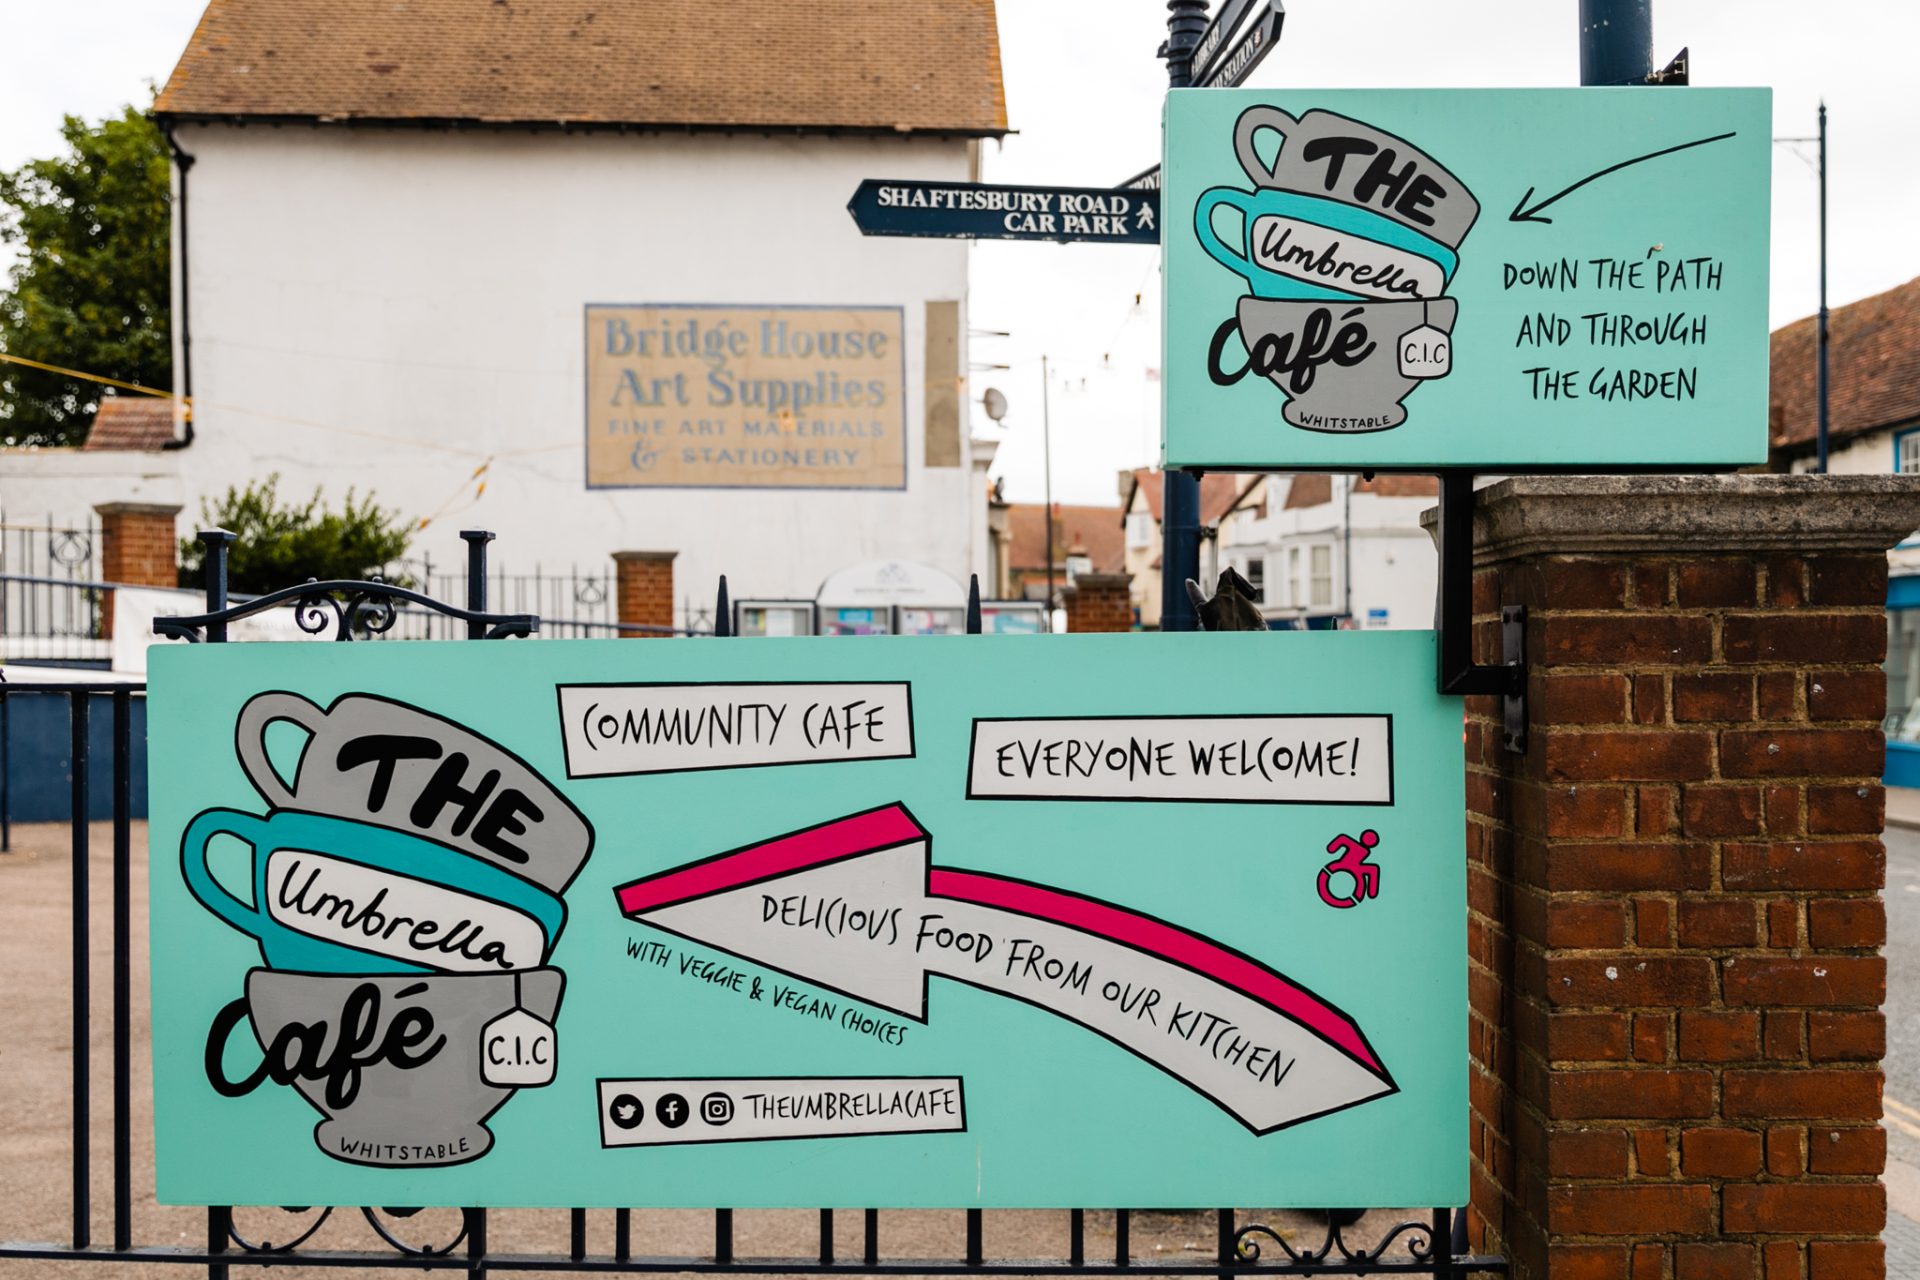 LIBRARY
STATION
SHAFTESBURY ROAD
CAR PARK
Bridge House
Art Supplies
FINE ART MATERIALS
& STATIONERY
THE
Umbrella
Café
C.I.C
WHITSTABLE
DOWN THE PATH
AND THROUGH
THE GARDEN
THE
Umbrella
Café
C.I.C
WHITSTABLE
COMMUNITY CAFE
EVERYONE WELCOME!
DELICIOUS FOOD FROM OUR KITCHEN
WITH VEGGIE & VEGAN CHOICES
THEUMBRELLACAFE